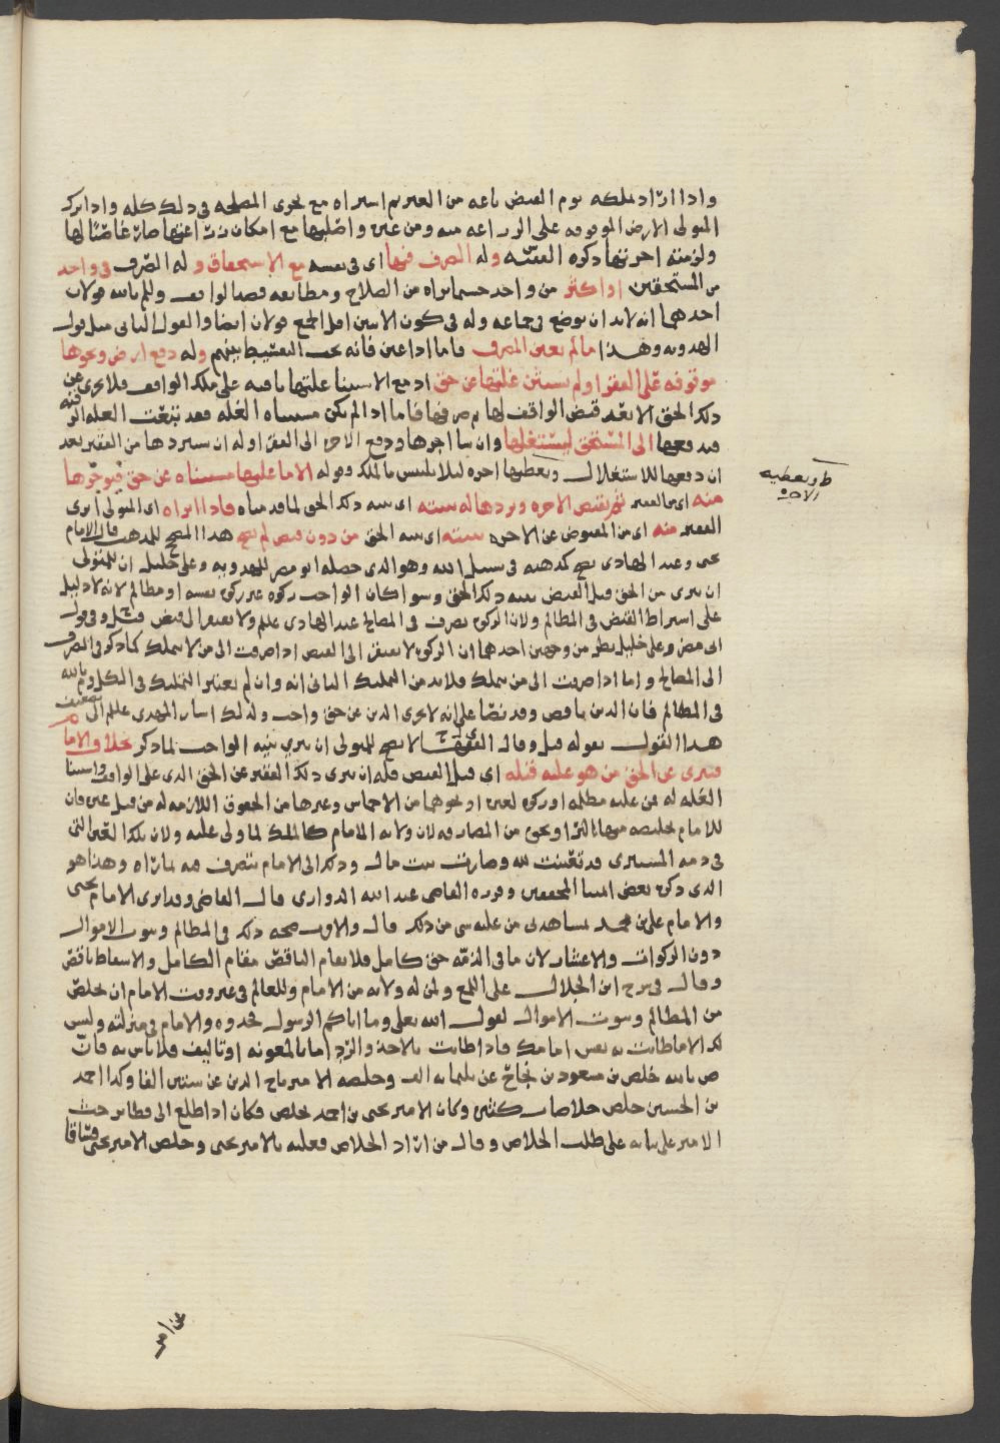 واذا اراد تملكه بعد القبض باعه من الغير ثم اشتراه مع تحري المصلحة في ذلك كله واذا ترك
المتولي الارض الموقوفة على الزراعة منه ومن غيره واصلبها مع امكان زراعتها صار غاصبا لها
ولزمته اجرتها ذكره الفقيه وله الصرف فيها اي في نفسه مع الاستحقاق وله الصرف في واحد
من المستحقين او اكثر من واحد حسبما يراه من الصلاح ومطابقة قصد الواقف وللم بالله قولان
احدهما انه لا بد ان يوضع في جماعة وله في كون الاثنين اقل الجمع قولان ايضا والقول الثاني مثل قول
الهدوية وهذا ما لم يعين المصرف فاما اذا عين فانه يجب التقسيط بينهم وله دفع ارض ونحوها
موقوفة على الفقرا ولم يستثن غلتها عن حق اذ مع الاستثنا غلتها باقية على ملك الواقف فلا يجزي عن
ذلك الحق الا بعد قبض الواقف لها ثم صرفها فاما اذا لم يكن مستثناه الغلة فقد تبعت الغلة الرقبة
فيدفعها الى المستحق ليستغلها وان شا اجرها ودفع الاجرة الى الفقرا وله ان يستردها من الفقير بعد
ان دفعها للاستغلال ويعطيها اخره لئلا يلتبس بالملك وقوله الا ما غلتها مستثناه عن حق فيوجرها
منه اي من الفقير ثم يقبض الاجرة ويردها له بنيته اي بنية ذلك الحق لما قدمناه فاذا ابراه اي المتولي ابرى
الفقير منه اي من المعوض عن الاجرة بنيته اي بنية الحق من دون قبض لم يصح هذا المصحح للمذهب قال الامام
يحيى وعند الهادي يصح كمذهبه في سبيل الله وهو الذي حصله ابو مضر للهدوية وعلي خليل ان للمتولي
ان يبري من الحق قبل القبض بنية ذلك الحق وسوا كان الواجب زكوة غير زكوة نفسه او مظالم لانه لا دليل
على اشتراط القبض في المظالم ولان الزكوة تصرف في المصالح عند الهادي عليلم ولا يفتقر الى قبض
ابي مضر وعلي خليل نظر من وجهين احدهما ان الزكوة لا تفتقر الى القبض اذا صرفت الى من لا يملك كما ذكر في الصرف
الى المصالح واما اذا صرفت الى من يملك فلا بد من التمليك الثاني انه وان لم يعتبر التمليك في الكل
في المظالم فان الدين ناقص وقد نصا على انه لا يجزي الدين عن حق واجب ولذلك اشار المهدي عليلم الى تضعيف
هذا القول بقوله قيل وقال الفقيه لا يصح للمتولي ان يبري بنية الواجب لما ذكر بخلاف الامام
فيبري عن الحق من هو عليه قبله اي قبل القبض فله ان يبري ذلك الفقير عن الحق الذي على الواقف واستثنا
الغلة له عن غلبه مظلمة او زكوة لغيره او نحوهما من الاخماس وغيرها من الحقوق اللازمة له من قبل غيره فان
للامام تخليصه منها بالبرا ونحوه من المصارفة لان ولاية الامام كالملك لما ولي عليه ولان تلك العين التي
في ذمة المستبري قد تعينت لله وصارت بيت مال وذلك الى الامام يتصرف فيه بما يراه وهذا هو
الذي ذكره بعض ائمتنا المحققين وقرره القاضي عبد الله الدواري قال القاضي وقد ابرى الامام يحيى
والامام علي بن محمد بمشاهدتي من عليه شي من ذلك قال والاقرب صحة ذلك في المظالم وبيوت الاموال
دون الزكوات والاعشار لان ما في الذمة حق كامل فلا يقام الناقص مقام الكامل والاسقاط ناقص
وقال في شرح ابن الجلال على اللمع ولمن له ولاية من الامام وللعالم في غير وقت الامام ان يخلص
من المظالم وبيوت الاموال لقول الله تعالى وما اتاكم الرسول فخذوه والامام في منزلته وليس
لك الا ما طابت به نفس امامك فاذا طابت بالاخذ والرد اما بالمعونة او تاليف فلا باس به فان
ص بالله خلص بن مسعود بن نجاح عن ثلثمائة الف وخلصه الامير تاج الدين عن ستين الفا وكذا احمد
بن الحسين خلص خلاصات كثيرة وكان الامير يحيى بن احمد يخلص فكان اذا اطلع الى قطابر حث
الامير علي بناته على طلب الخلاص وقال من اراد الخلاص فعليه بالامير يحيى وخلص الامير يحيى
ظ ويعطيه
الاجرة
عن امر